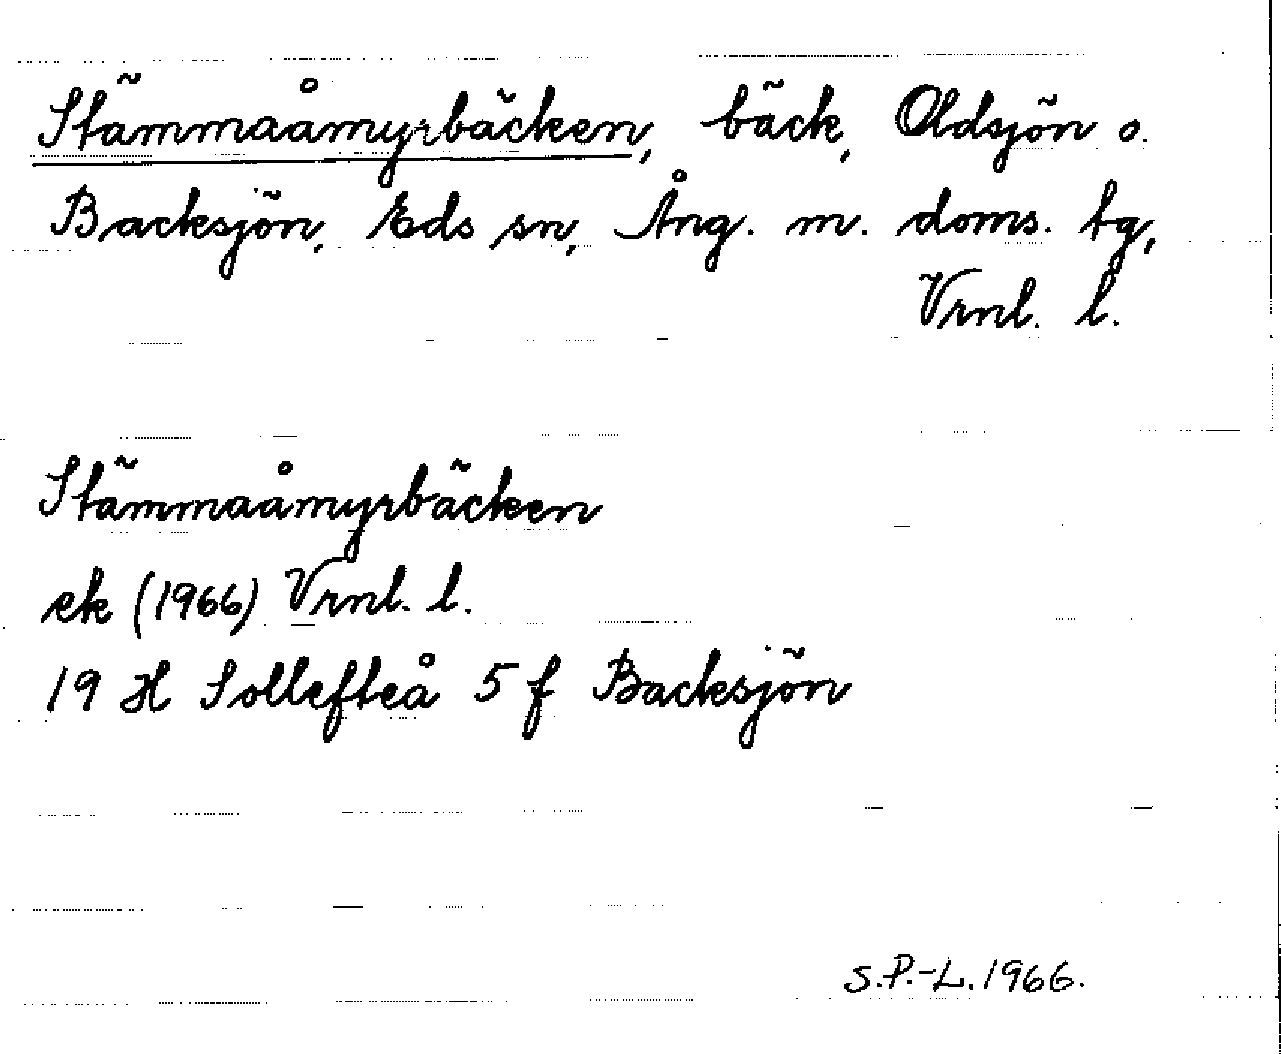 Stämmaåmyrbäcken, bäck, Oldsjön o.
Backsjön, Eds sn, Ång. m. doms. tg,
Vrnl. l.
Stämmaåmyrbäcken
ek (1966) Vrnl. l.
19 H Sollefteå 5 f Backsjön
S.P.-L. 1966.